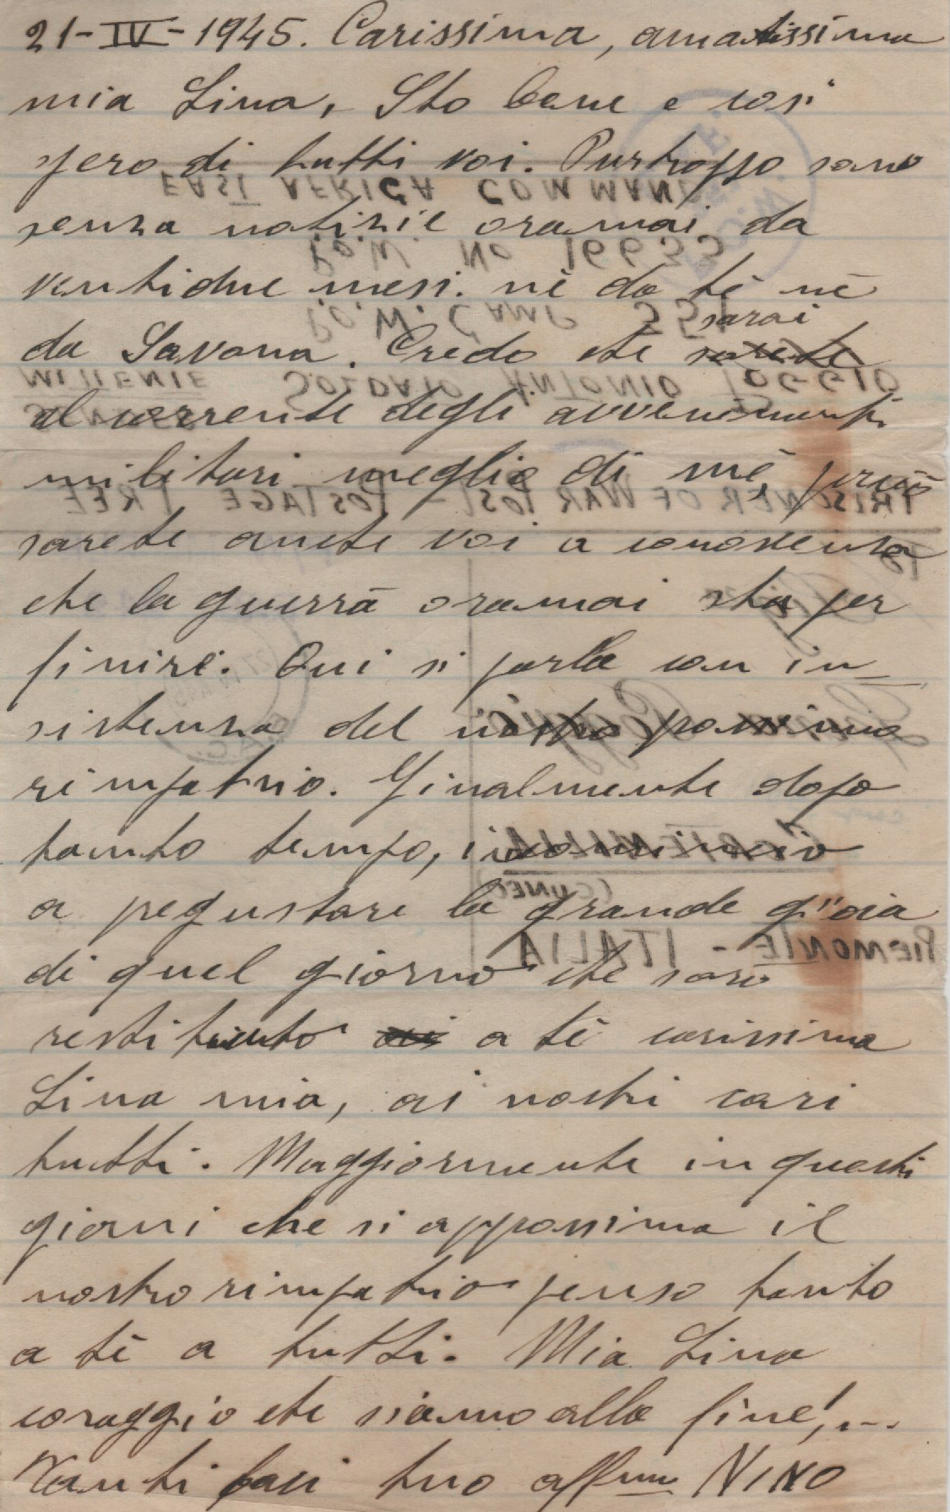 21-IV-1945. Carissima, amatissima
mia Lina, Sto bene e così
spero di tutti voi. Purtroppo sono
senza notizie oramai da
ventidue mesi. nè da tè nè
da Savona. Credo che sarai
al corrente degli avvenimenti
militari meglio di mè, perciò
sarete anche voi a conoscenza
che la guerra oramai sta per
finire. Qui si parla con in-
sistenza del nostro prossimo
rimpatrio. Finalmente dopo
tanto tempo, incomincio
a pegustare la grande gioia
di quel giorno che sarò
restituito a tè carissima
Lina mia, ai nostri cari
tutti. Maggiormente in questi
giorni che si appossima il
nostro rimpatrio penso tanto
a tè a tutti. Mia Lina
coraggio che siamo alla fine!...
Tanti baci tuo affmo NINO
EAST AFRICA COMMAND
P.o.W. No 16633
P.o.W. CAMP 351
MITTENTE SOLDATO ANTONIO POGGIO
SENDER
PRISONER OF WAR POST - POSTAGE FREE
To
Lina Poggio
(CUNEO)
PIEMONTE - ITALIA